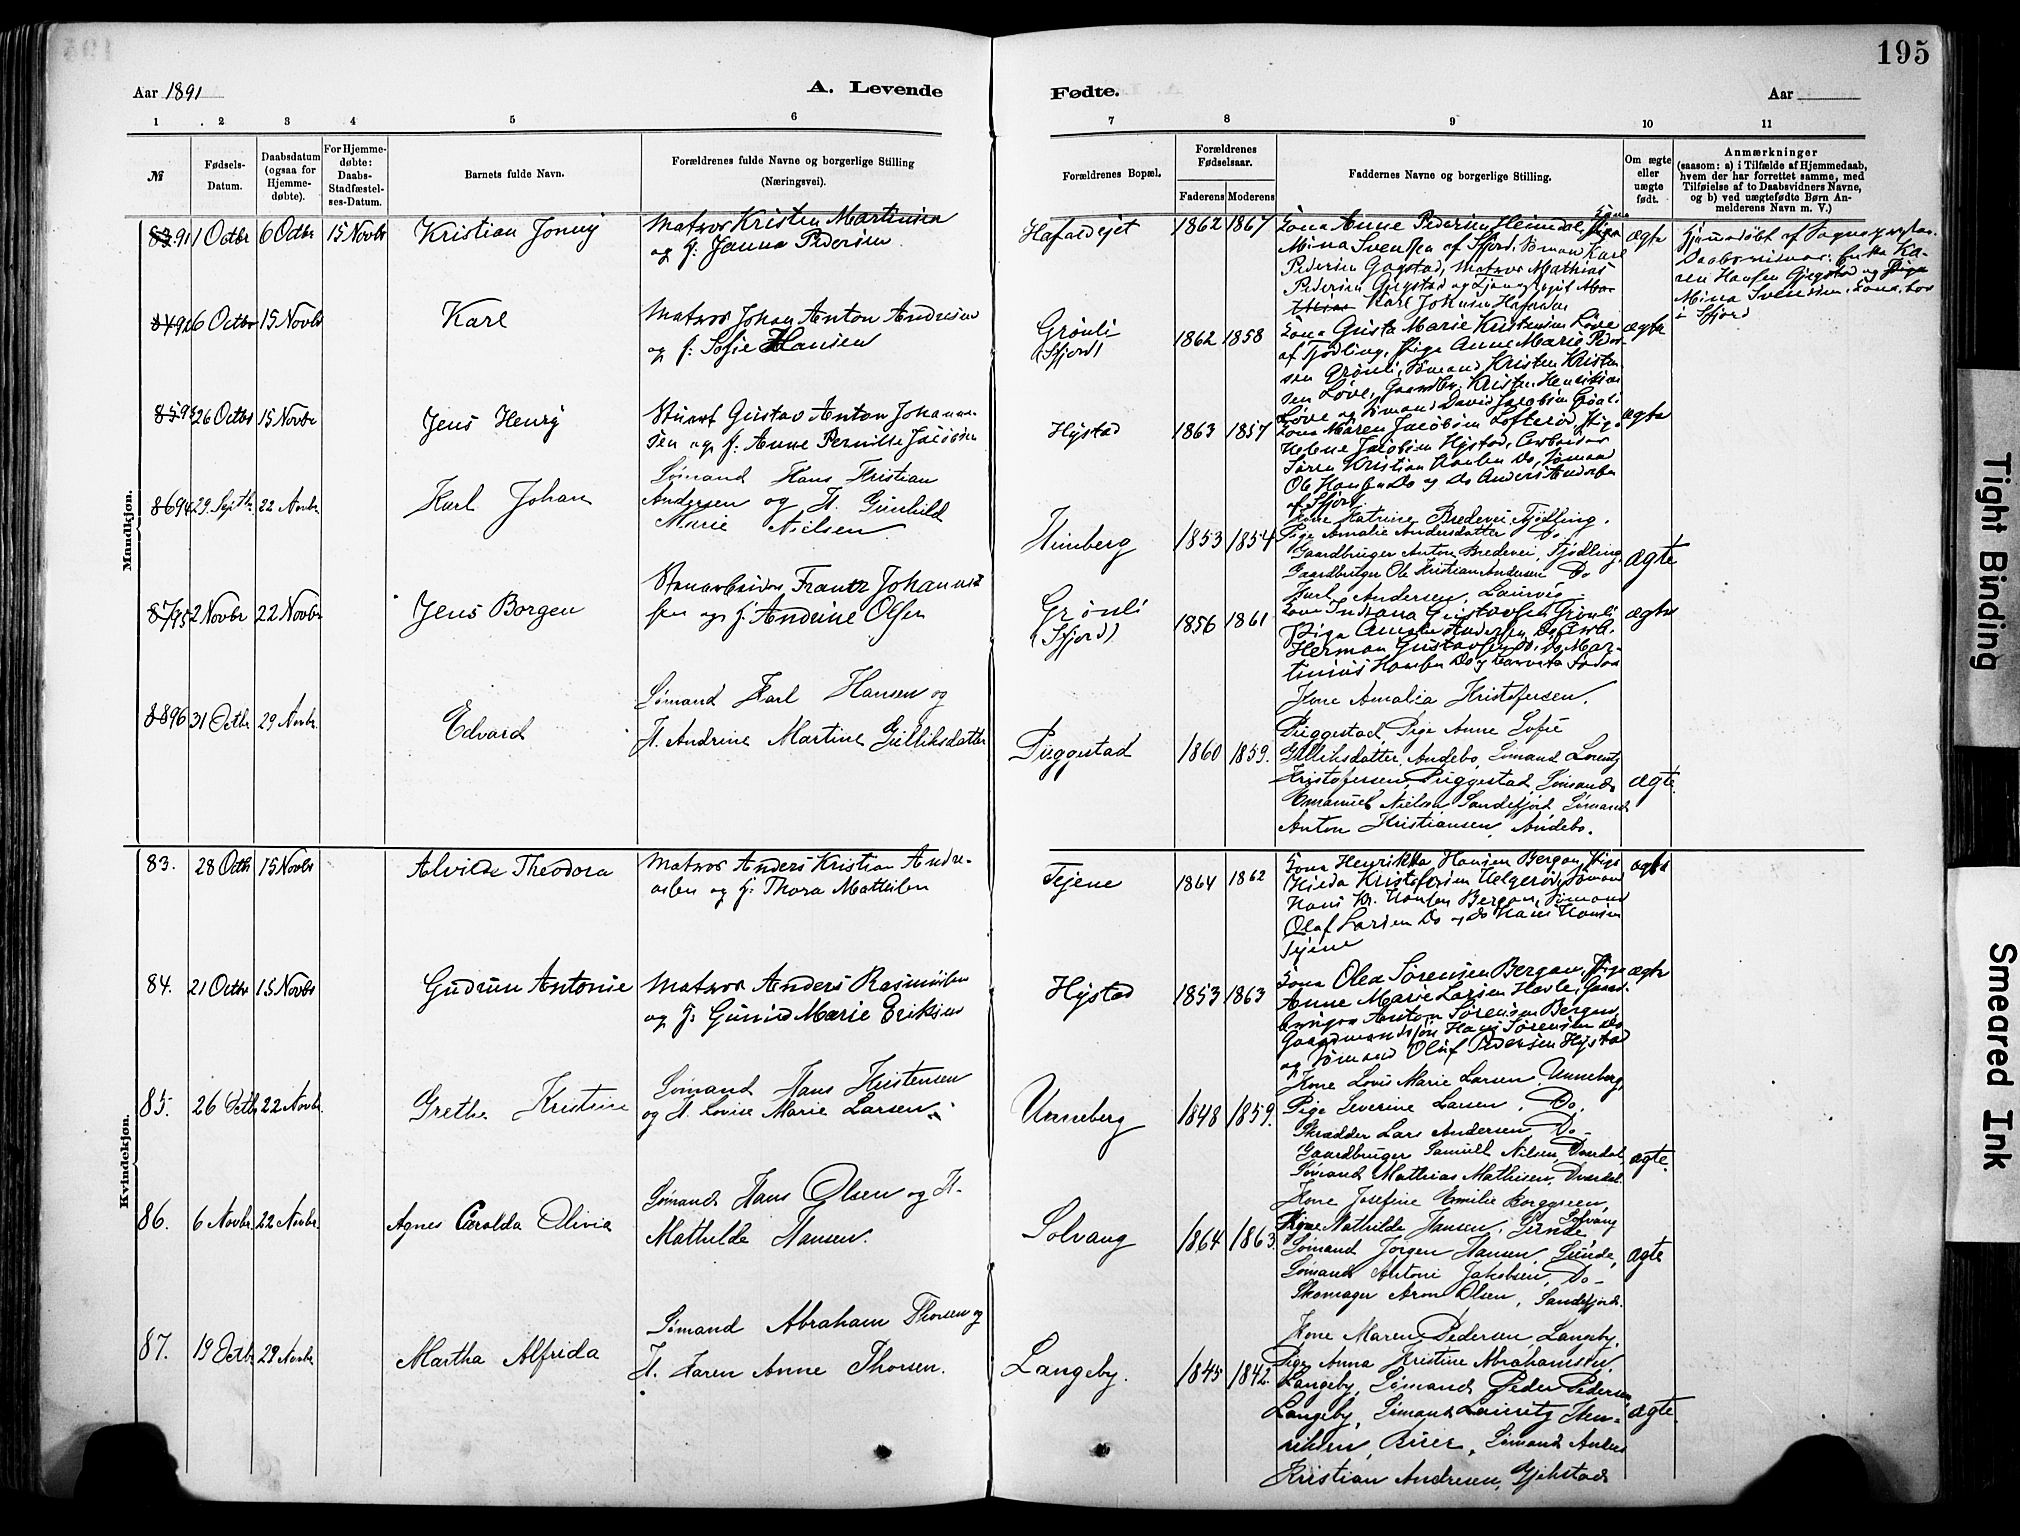 195
Aar 1891
A. Levende
Fødte.
Aar
1 2 3 4 5 6 7 8 9 10 11
№
Fødsels-
Datum.
Daabsdatum
(ogsaa for
Hjemme-
døbte).
For Hjemme-
døbte:
Daabs-
Stadfæstel-
ses-Datum.
Barnets fulde Navn.
Forældrenes fulde Navne og borgerlige Stilling
(Næringsvei).
Forældrenes Bopæl.
Forældrenes
Fødselsaar.
Faderens Moderens
Faddernes Navne og borgerlige Stilling.
Om ægte
eller
uægte
født.
Anmærkninger
(saasom: a) i Tilfælde af Hjemmedaab,
hvem der har forrettet samme, med
Tilføielse af to Daabsvidners Navne,
og b) ved uægtefødte Børn An-
melderens Navn m. V.)
Mandkjøn.
83 91 1 Octbr 6 Octbr 15 Novbr Kristian Jonny
Matros Kristen Martinsen
og h: Janna Pedersen
1862 1867
Kona Anne Pedersen
Mina Svensen af Sfjord, Sømand Karl
Pedersen Gogstad, Matros Mathias
Karl Johnsen
ægte
Hjemmedøbt af
Mina Svensen
i Sfjord
84 92 6 Octbr 15 Novbr Karl
Matros Johan Anton Andersen
og h: Sofie Hansen
Grønli
(Sfjord)
1862 1858
Kona Gusta Marie Kristensen Løve
af Tjødling, Pige Anne Marie Peder-
sen Grønli, Sømand Kristen Kristen-
sen Løve, Kristen Henriksen
Løve og Sømand David Jacobsen
ægte
85 93 26 Octbr 15 Novbr Jens Henry
Gustav Anton Johannes-
sen og h: Anne Pernille Jacobsen
Hystad
1863 1857
Kona Maren Jacobsen Lofterød, Pige
Helene Jacobsen Hystad, Arbeider
Søren Kristian Hansen Do, Sømand
Ole Hansen Do og Do Anders Andersen
af Sfjord
ægte
86 94 29. Septb. 22 Novbr. Karl Johan
Sømand Hans Kristian
Andersen og H. Gunhild
Marie Nielsen
Himberg
1853 1854
Kone Katrine Bredevei, Tjødling.
Pige Amalie Andersdatter Do.
Gaardbruger Anton Bredevei, Tjødling,
Gaardbruger Ole Kristian Andersen Do
Karl Andersen, Laurvig
ægte
87 95 2 Novbr 22 Novbr Jens Borgen
Frantz Johannes-
sen og h: Andrine Olsen
Grønli
(Sfjord)
1856 1861
Kona Indiana Gustavsen Grønli
Pige Amalie Andersen Do
Herman Gustavsen Do, Do Mar-
tinius Hansen Do
ægte
88 96 31 Octbr 29 Novbr. Edvard
Sømand Karl Hansen og
H. Andrine Martine Gulliksdatter
Puggestad
1860 1859.
Kone Amalia Kristofersen,
Puggestad, Pige Anne Sofie
Gulliksdatter, Andebo, Sømand Lorentz
Kristofersen, Puggestad, Sømand
Emanuel Nielsen Sandefjord, Sømand
Anton Kristiansen, Andebo.
ægte
Kvindekjøn.
83. 28 Octbr 15 Novbr Alvilde Theodora
Matros Anders Kristian Andre-
asen og h: Thora Mathilde
Tejene
1864 1862
Kona Henrikka Hansen Bergan, Pige
Hilda Kristofersen Helgerød, Sømand
Hans Kr. Hansen Bergan, Sømand
Olaf Larsen Do og Do Hans Hansen
Tejene
ægte
84. 21 Octbr 15 Novbr Gudrun Antonie
Matros Anders Rasmussen
og h: Gunild Marie Eriksen
Hystad
1853 1863
Kona Olea Sørensen Bergan, Pige
Anne Marie Larsen Havle, Gaard-
bruger Anton Sørensen Bergan
Gaardmandssøn Hans Sørensen Do
og Sømand Oluf Pedersen Hystad
ægte
85. 26 Octb 22 Novbr. Grethe Kristine
Sømand Hans Kristensen
og H. Lovise Marie Larsen.
Unneberg
1848 1859.
Kone Lovis Marie Larsen, Unneberg,
Pige Severine Larsen, Do,
Skrædder Lars Andersen, Do
Gaardbruger Samuel Nilsen, Dverdal,
Sømand Mathias Mathisen, Dverdal
ægte
86. 6 Novbr. 22 Novbr. Agnes Carolda Olivia
Sømand Hans Olsen og H.
Mathilde Hansen.
Solvang
1864 1863.
Kone Josefine Emilie Borggreen,
Solvang
Pige Mathilde Hansen, Sünde
Sømand Jørgen Hansen Sünde,
Sømand Antoni Jakobsen, Do
Skomager Aron Olsen, Sandefjord.
ægte
87. 19 Octb. 29 Novbr. Martha Alfrida
Sømand Abraham Thorsen og
H. Karen Anne Thorsen.
Langeby.
1845 1842.
Kone Maren Pedersen Langeby.
Pige Anna Kristine Abrahamsen,
Langeby, Sømand Peder Pedersen
Langeby, Sømand Lauritz Hen-
riksen, Buer, Sømand Anders
Kristian Andresen, Gjekstad
ægte
Tight Binding
Smeared Ink